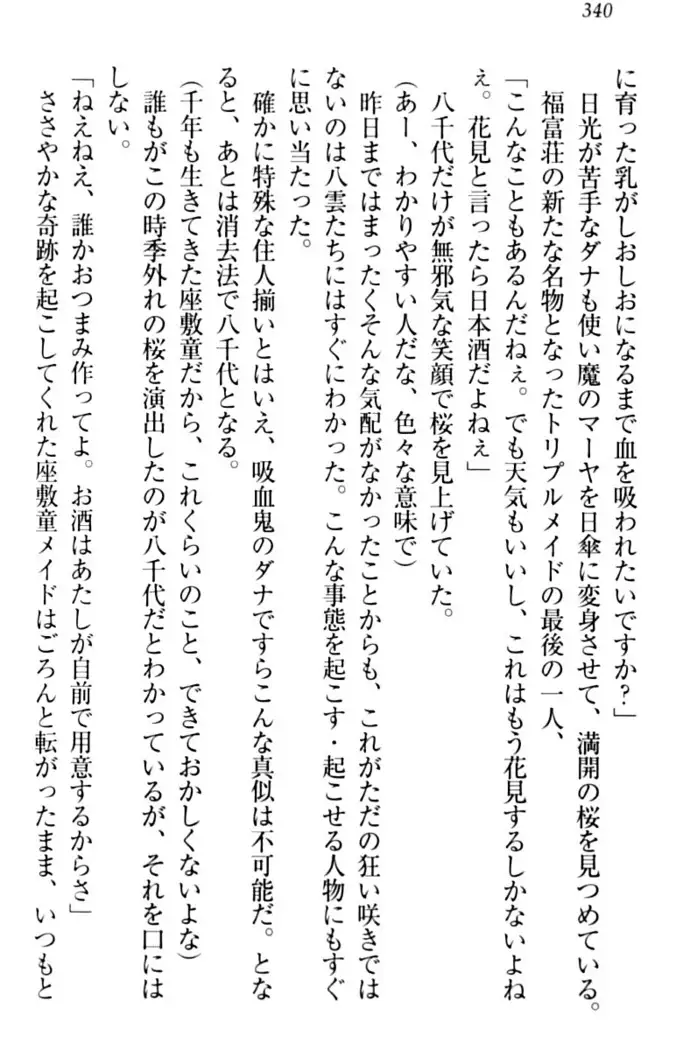 340
に育った乳がしおしおになるまで血を吸われたいですか?」
日光が苦手なダナも使い魔のマーヤを日傘に変身させて、満開の桜を見つめている。
福富荘の新たな名物となったトリプルメイドの最後の一人、
「こんなこともあるんだねぇ。でも天気もいいし、これはもう花見するしかないよね
ぇ。花見と言ったら日本酒だよねぇ」
八千代だけが無邪気な笑顔で桜を見上げていた。
(あー、わかりやすい人だな、色々な意味で)
昨日まではまったくそんな気配がなかったことからも、これがただの狂い咲きでは
ないのは八雲たちにはすぐにわかった。こんな事態を起こす・起こせる人物にもすぐ
に思い当たった。
確かに特殊な住人揃いとはいえ、吸血鬼のダナですらこんな真似は不可能だ。とな
ると、あとは消去法で八千代となる。
(千年も生きてきた座敷童だから、これくらいのこと、できておかしくないよな)
誰もがこの時季外れの桜を演出したのが八千代だとわかっているが、それを口には
しない。
「ねえねえ、誰かおつまみ作ってよ。お酒はあたしが自前で用意するからさ」
ささやかな奇跡を起こしてくれた座敷童メイドはごろんと転がったまま、いつもと